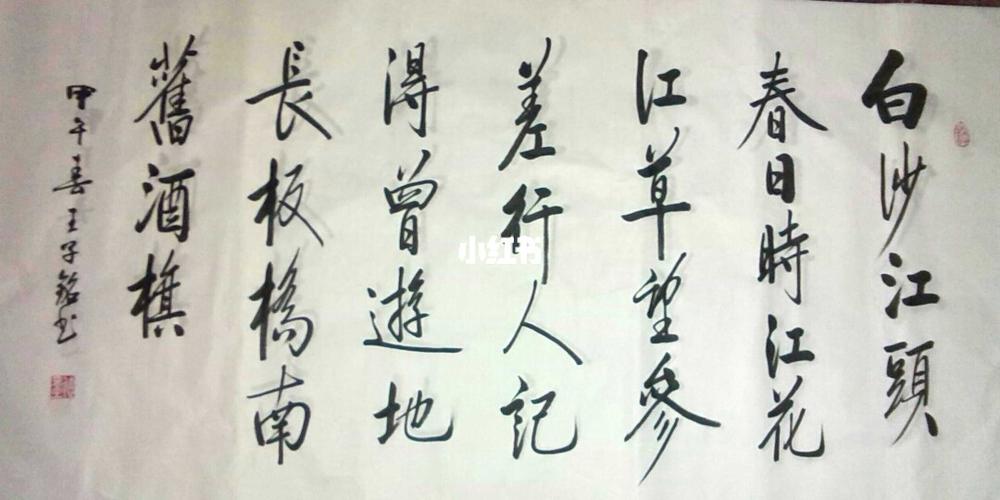 白沙江頭
春日時江花
江草望參
差行人記
得曾遊地
長板橋南
舊酒旗
甲午春王子銘书
小红书